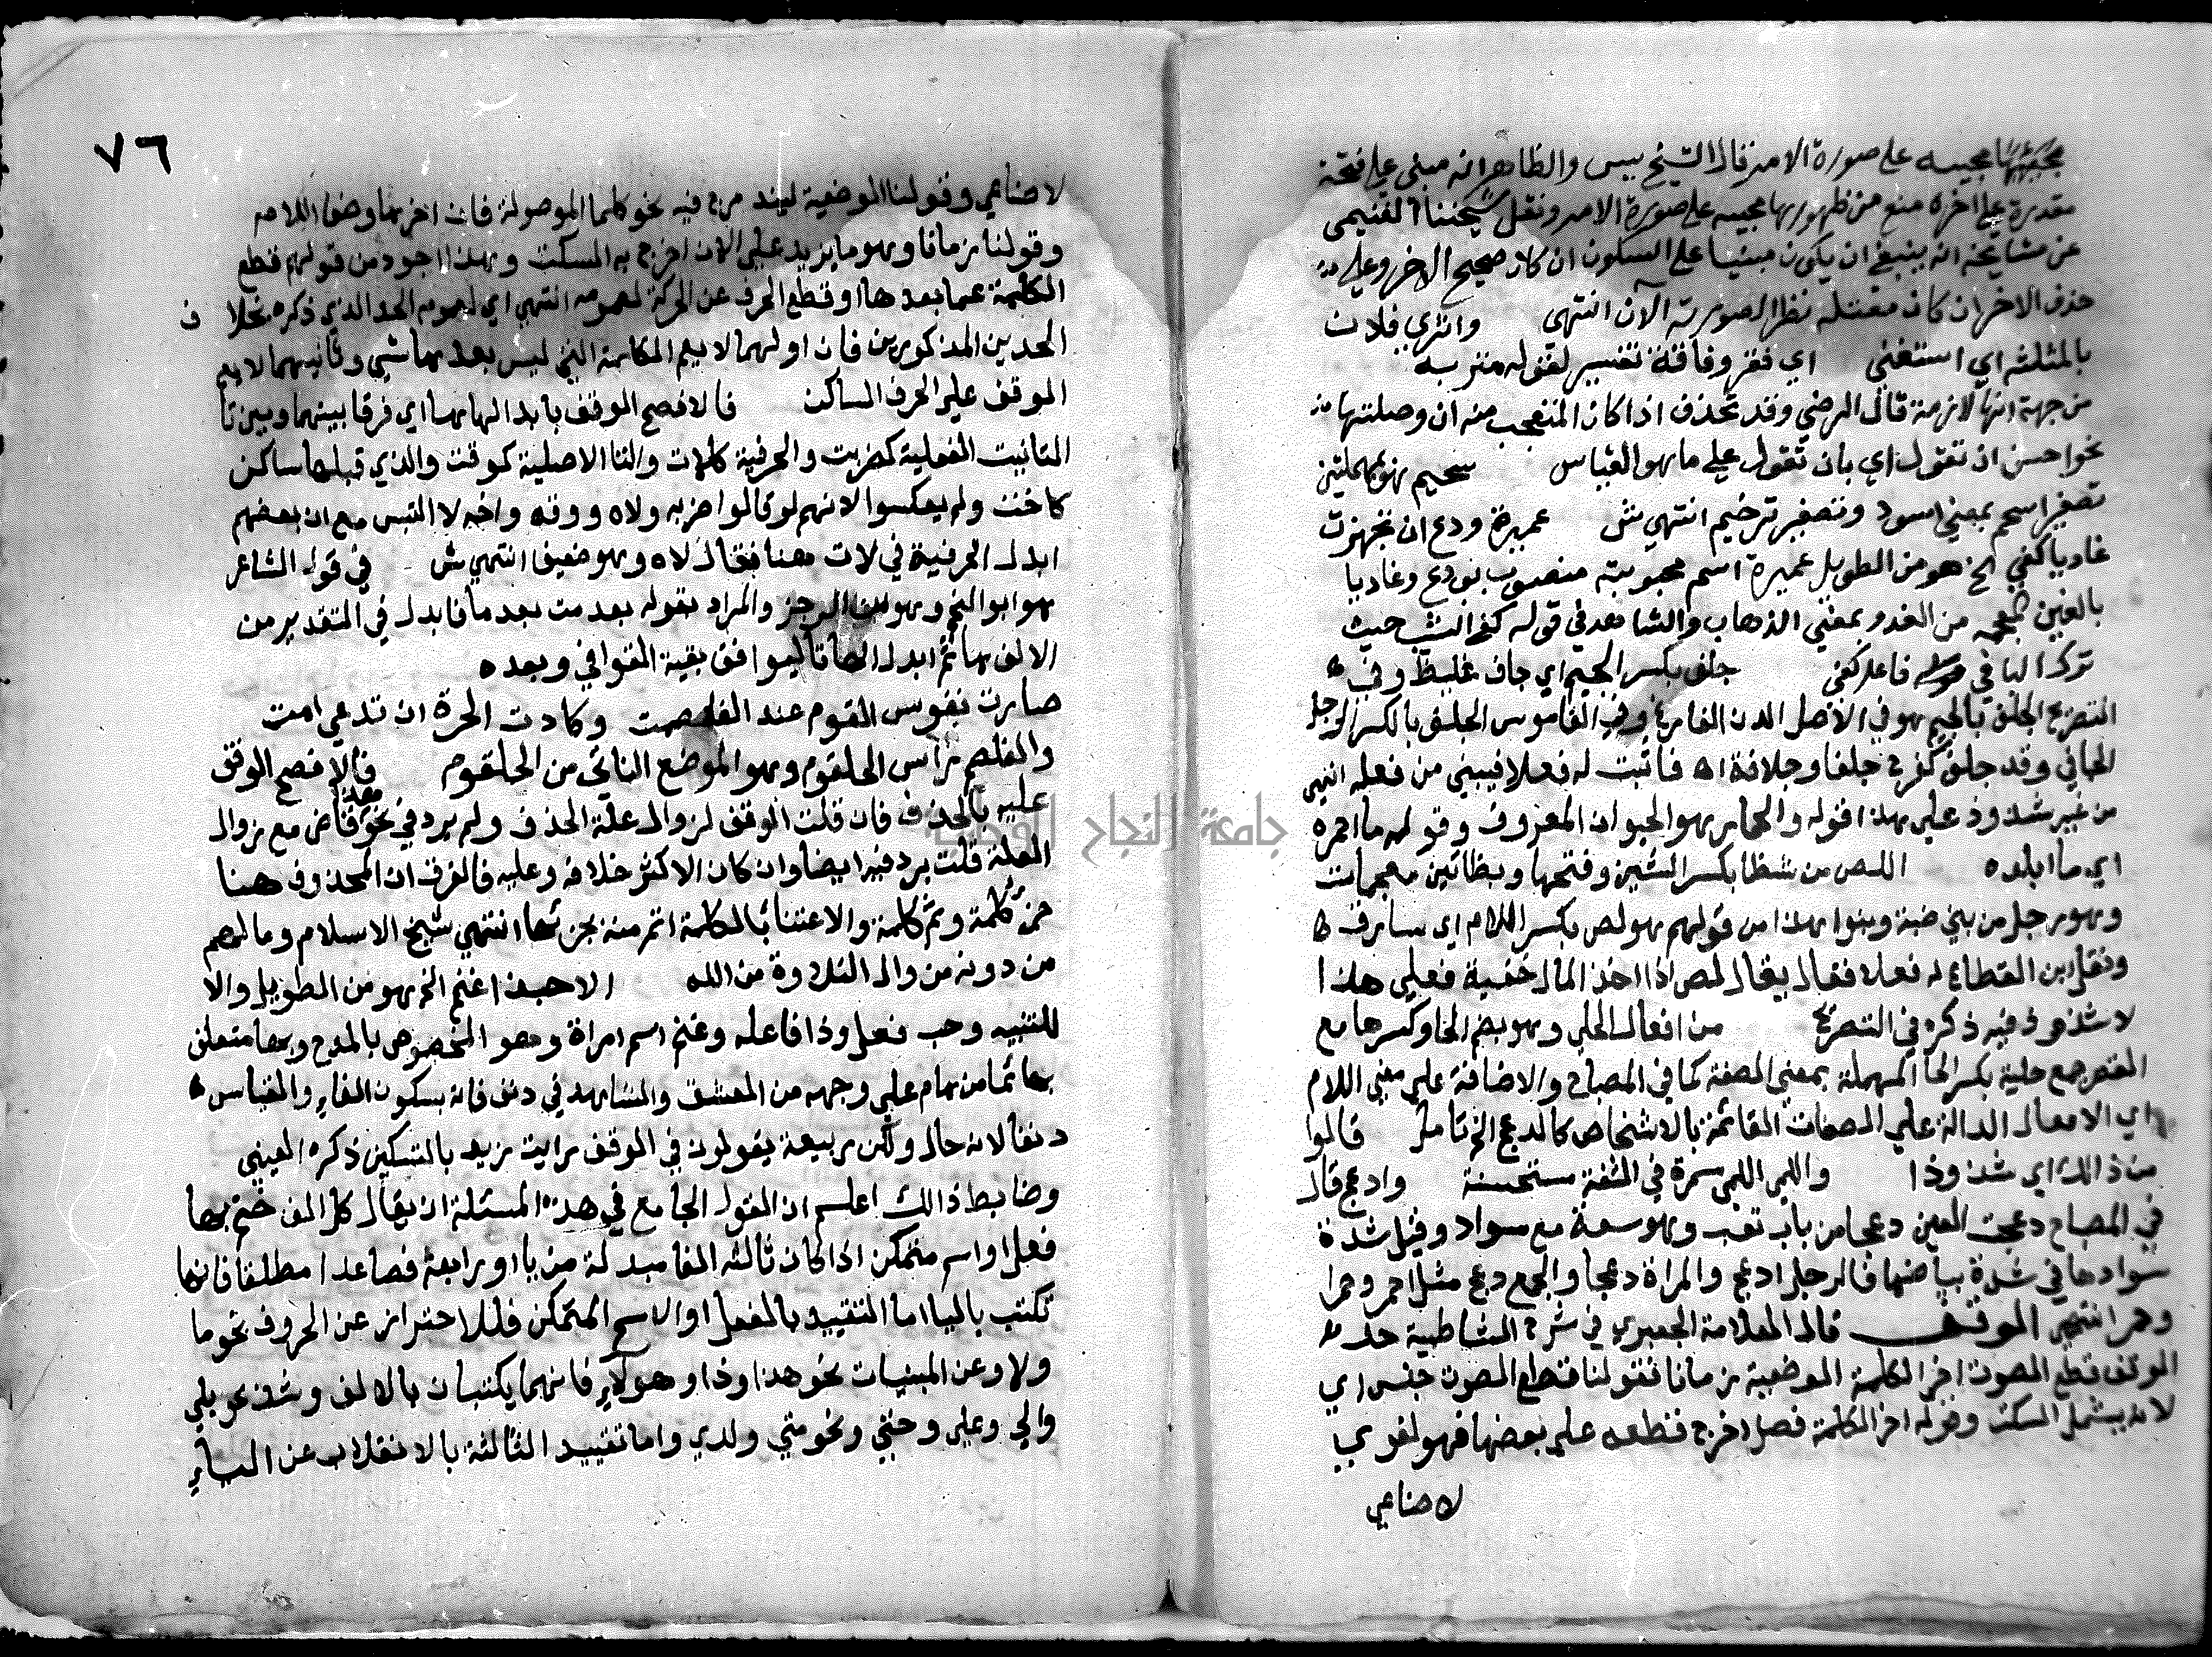 مجيئها مجيبه على صورة الامر قال الشيخ يس والظاهر انه مبني على فتحة
مقدرة على اخره منع من ظهورها مجيبه على صورة الامر ونقل شيخنا الغنيمي
عن مشايخه انه ينبغي ان يكون مبنيا على السكون ان كان صحيح الاخر وعلى
حذف الاخر ان كان معتله نظرا لصورته الآن انتهى واثري فلان
بالمثلثه اي استغنى اي فقر وفاقة تفسير لقوله متربه
من جهة انها لازمة قال الرضي وقد تحذف اذا كان المتعجب منه ان وصلتها
نحو احسن ان تقول اي بان تقول على ما هو القياس سحيم هو بمهملتين
تصغير اسحم بمعنى اسود وتصغير ترخيم انتهى ش عميرة ودع ان تجهزت
غاديا كفى الخ هو من الطويل عميرة اسم محبوبته منصوب بودع وغاديا
بالغين المعجمه من الغدو بمعنى الذهاب والشاهد في قوله كفى الشيب حيث
ترك البا في فاعل كفى جلف بكسر الجيم اي جاف غليظ وفي
التصريح الجلف بالجيم هو في الاصل الدن الفارغ وفي القاموس الجلف بالكسر الرجل
الجافي وقد جلف كفرح جلفا وجلافة اه فاثبت له فعلا فيبني من فعله انتهى
من غير شذوذ على هذا قوله والحمار هو الحيوان المعروف وقولهم ما احمره
اي ما ابلده اللص من شظا بكسر الشين وفتحها وبظائين معجمات
وهو رجل من بني ضبة وبنوا هذا من قولهم هو لص بكسر اللام اي سارف
ونقل ابن القطاع له فعلا فقال يقال لص اذا اخذ المال خفية فعلى هذا
لا شذوذ فيه ذكره في التصريح من افعال الحلي وهو بضم الحا وكسرها مع
القصر جمع حلية بكسر الحا المهملة بمعنى الصفة كما في المصباح والاضافة على معنى اللام
اي الافعال الدالة على الصفات القائمة بالاشخاص كالدعج الخ تامل قالوا
من ذالك اي شذوذا واللمى اللمى سمرة في الشفة مستحسنة وادعج قال
في المصباح دعجت العين دعجا من باب تعب وهو سعة مع سواد وقيل شدة
سوادها في شدة بياضها فالرجل ادعج والمراة دعجا والجمع دعج مثل احمر وحمرا
وحمر انتهى الوقف قال العلامة الجعبري في شرح الشاطبية حد
الوقف قطع الصوت اخر الكلمة الوضعية زمانا فقولنا قطع الصوت جنس اي
لانه يشمل السكت وقوله اخر الكلمة فصل اخرج قطعه على بعضها فهو لغوي
لا صناعي
٧٦
لا صناعي وقولنا الوضعية ليندرج فيه نحو كلما الموصولة فان اخرها وضعا اللام
وقولنا زمانا وهو ما يزيد على الان اخرج به السكت وهذا اجود من قولهم قطع
الكلمة عما بعدها او قطع الحرف عن الحركة لعمومه انتهى اي لعموم الحد الذي ذكره بخلا ف
الحدين المذكورين فان اولهما لا يعم الكلمة التي ليس بعدها شي وثانيهما لا يعم
الوقف على الحرف الساكن فالافصح الوقف بابدالها ها اي فرقا بينها وبين تا
التانيث الفعلية كضربت والحرفية كلات والتا الاصلية كوقت والذي قبلها ساكن
كاخت ولم يعكسوا لانهم لو قالوا ضربه ولاه ووقه واخه لالتبس مع ان بعضهم
ابدل الحرفية في لات هنا فقال لاه وهو ضعيف انتهى ش في قول الشاعر
هو ابو النجم وهو من الرجز والمراد بقوله بعدمت بعد ما فابدل في التقدير من
الالف ها ثم ابدل الها تا ليوافق بقية القوافي وبعده
صارت نفوس القوم عند الغلصمت وكادت الحرة ان تدعى امت
والغلصم راس الحلقوم وهو الموضع الناتى من الحلقوم فالافصح الوقف
عليه بالحذف فان قلت الوقف لزوال علة الحذف ولم يرد في نحو قاض مع زوال
العلة قلت يرد فيه ايضا وان كان الاكثر خلافه وعليه فالفرق ان المحذوف هنا
جزء كلمة وثم كلمة والاعتنا بالكلمة اتم منه بجزئها انتهى شيخ الاسلام ومالهم
من دونه من وال التلاوة من الله الا حبذا غنم الخ هو من الطويل والا
للتنبيه وحب فعل وذا فاعله وغنم اسم امراة وهو المخصوص بالمدح وبها متعلق
بهائما من هام على وجهه من العشق والشاهد في دنف فانه بسكون الفاء والقياس
دنفا لانه حال ولكن ربيعة يقولون في الوقف رايت زيد بالتسكين ذكره العيني
وضابط ذالك اعلم ان القول الجامع في هذه المسئلة ان يقال كل الف ختم بها
فعل او اسم متمكن اذا كان ثالثه الفا مبدلة من يا او رابعة فصاعدا مطلقا فانها
تكتب باليا اما التقييد بالفعل او الاسم المتمكن فللاحتراز عن الحروف نحو ما
ولا وعن المبنيات نحو هذا وذا وهولاء فانهما يكتبان بالالف وشذ نحو بلى
والى وعلى وحتى ونحو متى ولدى واما تقييد الثالثة بالانقلاب عن الياء